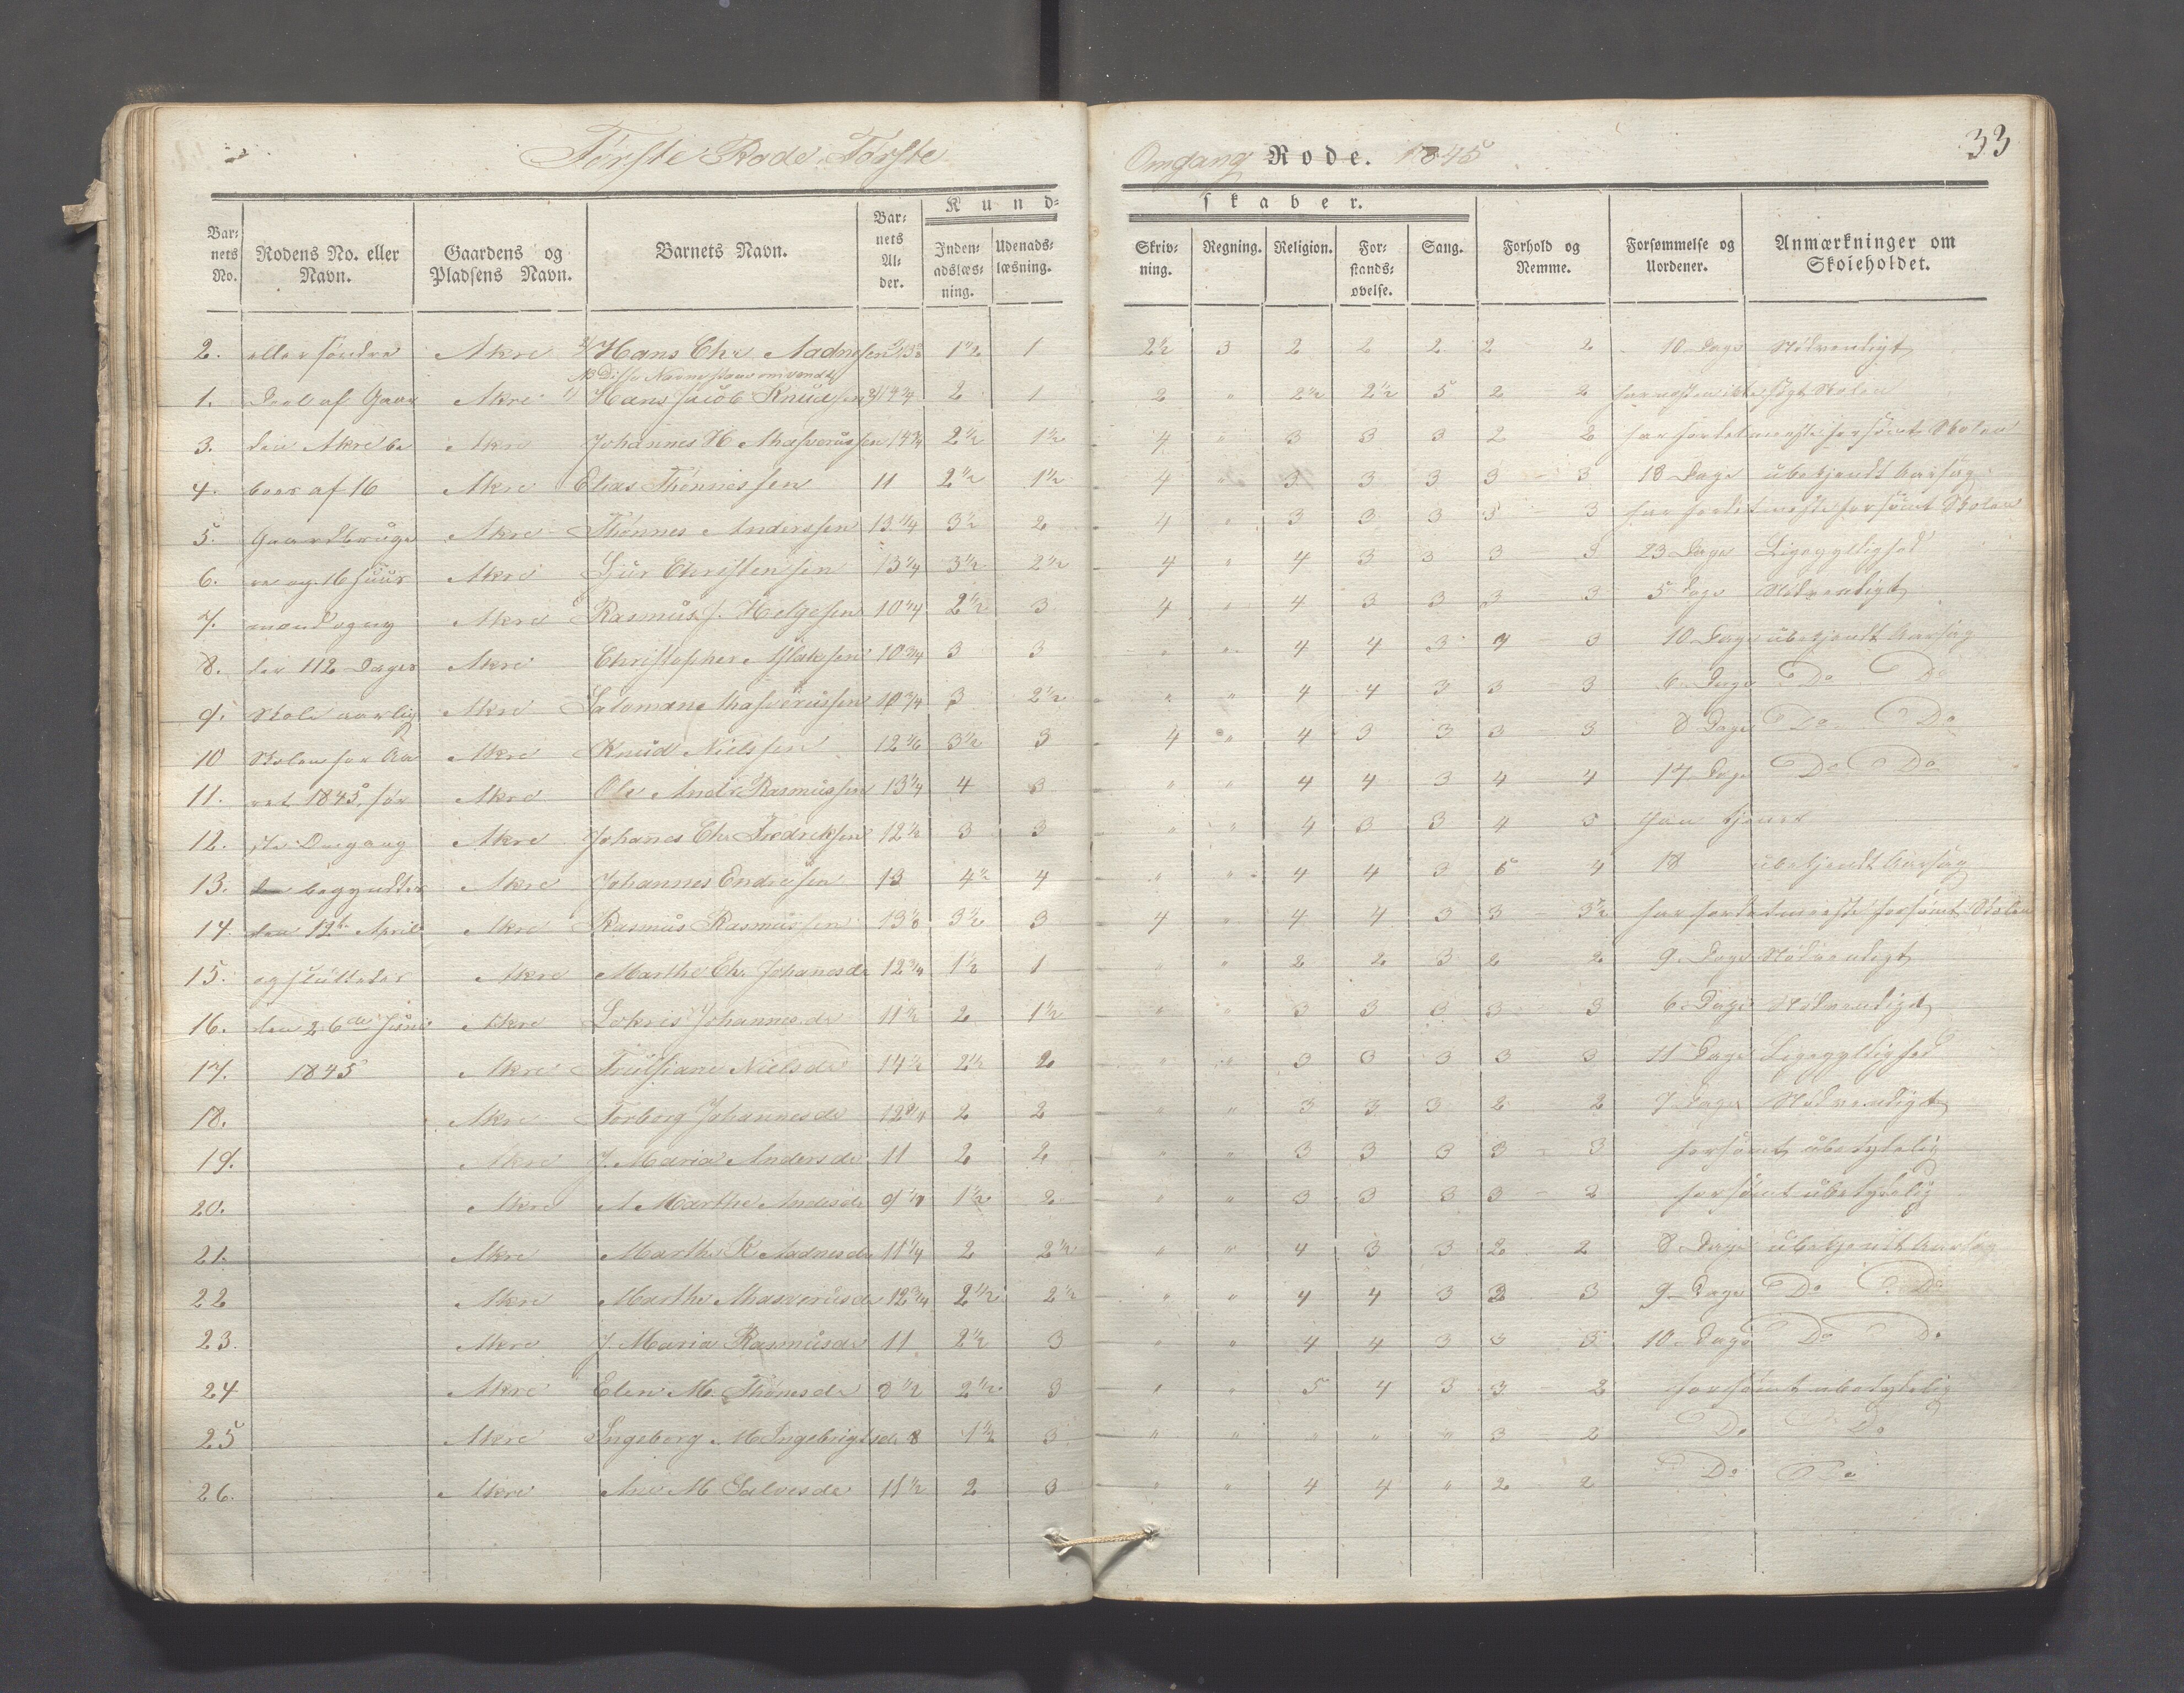 Første Rode Første Omgang Rode. 1845
33
Kundskaber.
Barnets No. | Rodens No. eller Navn. | Gaardens og Pladsens Navn. | Barnets Navn. | Barnets Alder. | Indenadslæsning. | Udenadslæsning. | Skrivning. | Regning. | Religion. | Forstandsøvelse. | Sang. | Forhold og Nemme. | Forsømmelse og Uordener. | Anmærkninger om Skoleholdet.
2. eller søndre Akre 2/ Hans Chr. Aadnesen 1½ 1 2½ 3 2 2 2 2 - 2 10 Dage Nødvendigt
NB Disse Navne staae omvendt
1. Deel af Gaar Akre 1/ Hans Jacob Knudsen 14¾ 2 1 2 " 2½ 2½ 5 2 - 2 har næsten ikke søgt Skolen
3. den Akre be Akre Johannes H. Ahasverussen 14¾ 2½ 1½ 4 " 3 3 3 2 2 har fordetmeste forsømt Skolen
4. boes af 16 Akre Elias Thønnessen 11 2½ 1½ 4 " 3 3 3 3 - 3 18 Dage ubekjendt Aarsag
5. Gaardbruge Akre Thønnes Anderssen 13¼ 3½ 2 4 " 3 3 3 3 - 3 har fordetmeste forsømt Skolen
6. re og 16 Huus Akre Sjur Christensen 13¼ 3½ 2½ 4 " 4 3 3 3 - 3 23 Dage Ligegyldighed
7. mænd og ny Akre Rasmus J. Helgesen 10¼ 2½ 3 4 " 4 3 3 3 3 5 Dage Nødvendigt
8. der 112 Dages Akre Christopher Aslaksen 10¾ 3 3 " " 4 4 3 4 - 3 10 Dage ubekjendt Aarsag
9. Skole aarlig Akre Salomon Ahasverussen 10¾ 3 2½ " " 4 4 3 3 - 3 6 Dage Do Do
10 Skolen for Aa Akre Knud Nielssen 3½ 3 4 " 4 3 3 3 - 3 8 Dage Do Do
11. ret 1845, før Akre Ole Andr. Rasmussen 13¼ 4 3 " " 4 4 3 4 - 4 17 Dage Do Do
12. ste Omgang Akre Johanes Chr. Fredriksen 12½ 3 3 " " 4 3 3 4 3 han tjener
13. begyndtes Akre Johannes Endresen 13 4½ 4 " " 4 4 3 5 4 18 ubekjendt Aarsag
14. den 12te April Akre Rasmus Rasmussen 3½ 3 4 " 4 4 3 3 - 3½ har fordetmeeste forsømt Skolen
15. og sluttedes Akre Marthe Chr. Johanesdr 12¾ 1½ 1 " " 2 2 3 2 2 9 Dage Nødvendigt
16. den 26de Juni Akre Johannesdr 11½ 2 1½ " " 3 3 3 3 - 3 6 Dage Nødvendigt
17. 1845 Akre Nielsdr 14½ 2½ 2 " " 3 3 3 3 3 11 Dage Ligegyldighed
18. Akre Torborg Johannesdr 12¾ 2 2 " " 3 3 3 2 - 2 7 Dage Nødvendigt
19. Akre J. Maria Andersdr 11 2 2 " " 3 3 3 3 - 3 forsømt ubetydelig
20. Akre A Marthe Andersdr 9¼ 1½ 2 " " 3 3 3 3 - 2 forsømt ubetydelig
21. Akre Marthe K Aadnesdr 11¼ 2 2½ " " 4 3 3 2 2 8 Dage ubekjendt Aarsag
22 Akre Marthe Ahasverusdr 12¾ 2½ 2½ " " 4 4 3 3 3 9 Dage Do Do
23. Akre J. Maria Rasmusdr 11 2½ 3 " " 4 4 3 3 3 10 Dage Do Do
24 Akre Elen M. Thønesdr 8½ 2½ 3 " " 5 4 3 3 - 2 forsømt ubetydelig
25 Akre Ingeborg M Ingebrigtsdr 8 1½ 3 " " " " " 3 2 Do Do
26. Akre Ane M Salvesdr 11½ 2 3 " " 4 4 " 2 - 2 Do Do